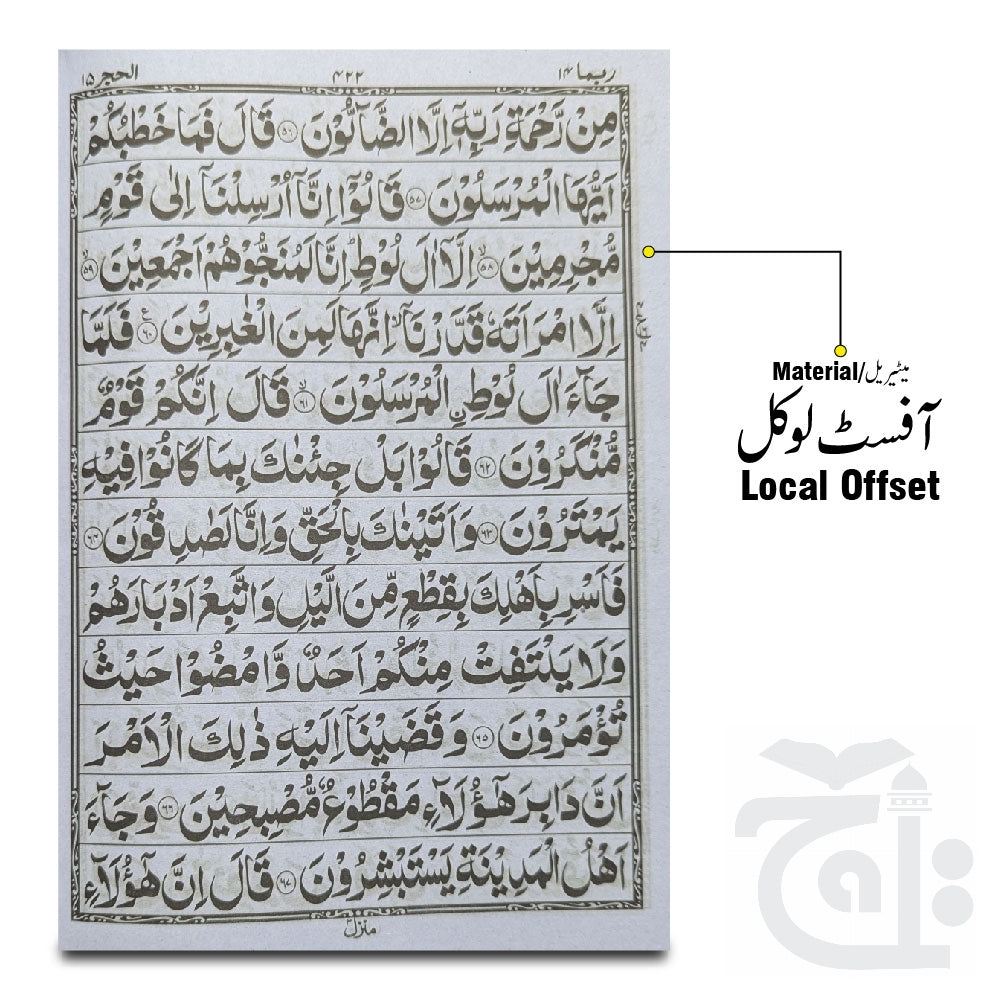 ربما ۱۴
۴۲۲
الحجر ۱۵
مِنْ رَّحْمَةِ رَبِّهٖۤ اِلَّا الضَّآلُّوْنَ ۵۶ قَالَ فَمَا خَطْبُكُمْ
اَيُّهَا الْمُرْسَلُوْنَ ۵۷ قَالُوْۤا اِنَّاۤ اُرْسِلْنَاۤ اِلٰى قَوْمٍ
مُّجْرِمِيْنَ ۵۸ اِلَّاۤ اٰلَ لُوْطٍ ؕ اِنَّا لَمُنَجُّوْهُمْ اَجْمَعِيْنَ ۵۹
اِلَّا امْرَاَتَهٗ قَدَّرْنَاۤ ۙ اِنَّهَا لَمِنَ الْغٰبِرِيْنَ ۶۰ فَلَمَّا
جَآءَ اٰلَ لُوْطِ ِۨالْمُرْسَلُوْنَ ۶۱ قَالَ اِنَّكُمْ قَوْمٌ
مُّنْكَرُوْنَ ۶۲ قَالُوْا بَلْ جِئْنٰكَ بِمَا كَانُوْا فِيْهِ
يَمْتَرُوْنَ ۶۳ وَاَتَيْنٰكَ بِالْحَقِّ وَاِنَّا لَصٰدِقُوْنَ ۶۴
فَاَسْرِ بِاَهْلِكَ بِقِطْعٍ مِّنَ الَّيْلِ وَاتَّبِعْ اَدْبَارَهُمْ
وَلَا يَلْتَفِتْ مِنْكُمْ اَحَدٌ وَّامْضُوْا حَيْثُ
تُؤْمَرُوْنَ ۶۵ وَقَضَيْنَاۤ اِلَيْهِ ذٰلِكَ الْاَمْرَ
اَنَّ دَابِرَ هٰۤؤُلَآءِ مَقْطُوْعٌ مُّصْبِحِيْنَ ۶۶ وَجَآءَ
اَهْلُ الْمَدِيْنَةِ يَسْتَبْشِرُوْنَ ۶۷ قَالَ اِنَّ هٰۤؤُلَآءِ
منزل۳
Material/میٹیریل
آفسٹ لوکل
Local Offset